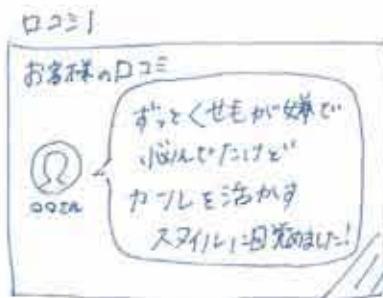 口コミ1
お客様の口コミ
ずっとくせもが嫌で
悩んでたけど
カールを活かす
スタイルに目覚めました!
〇〇さん